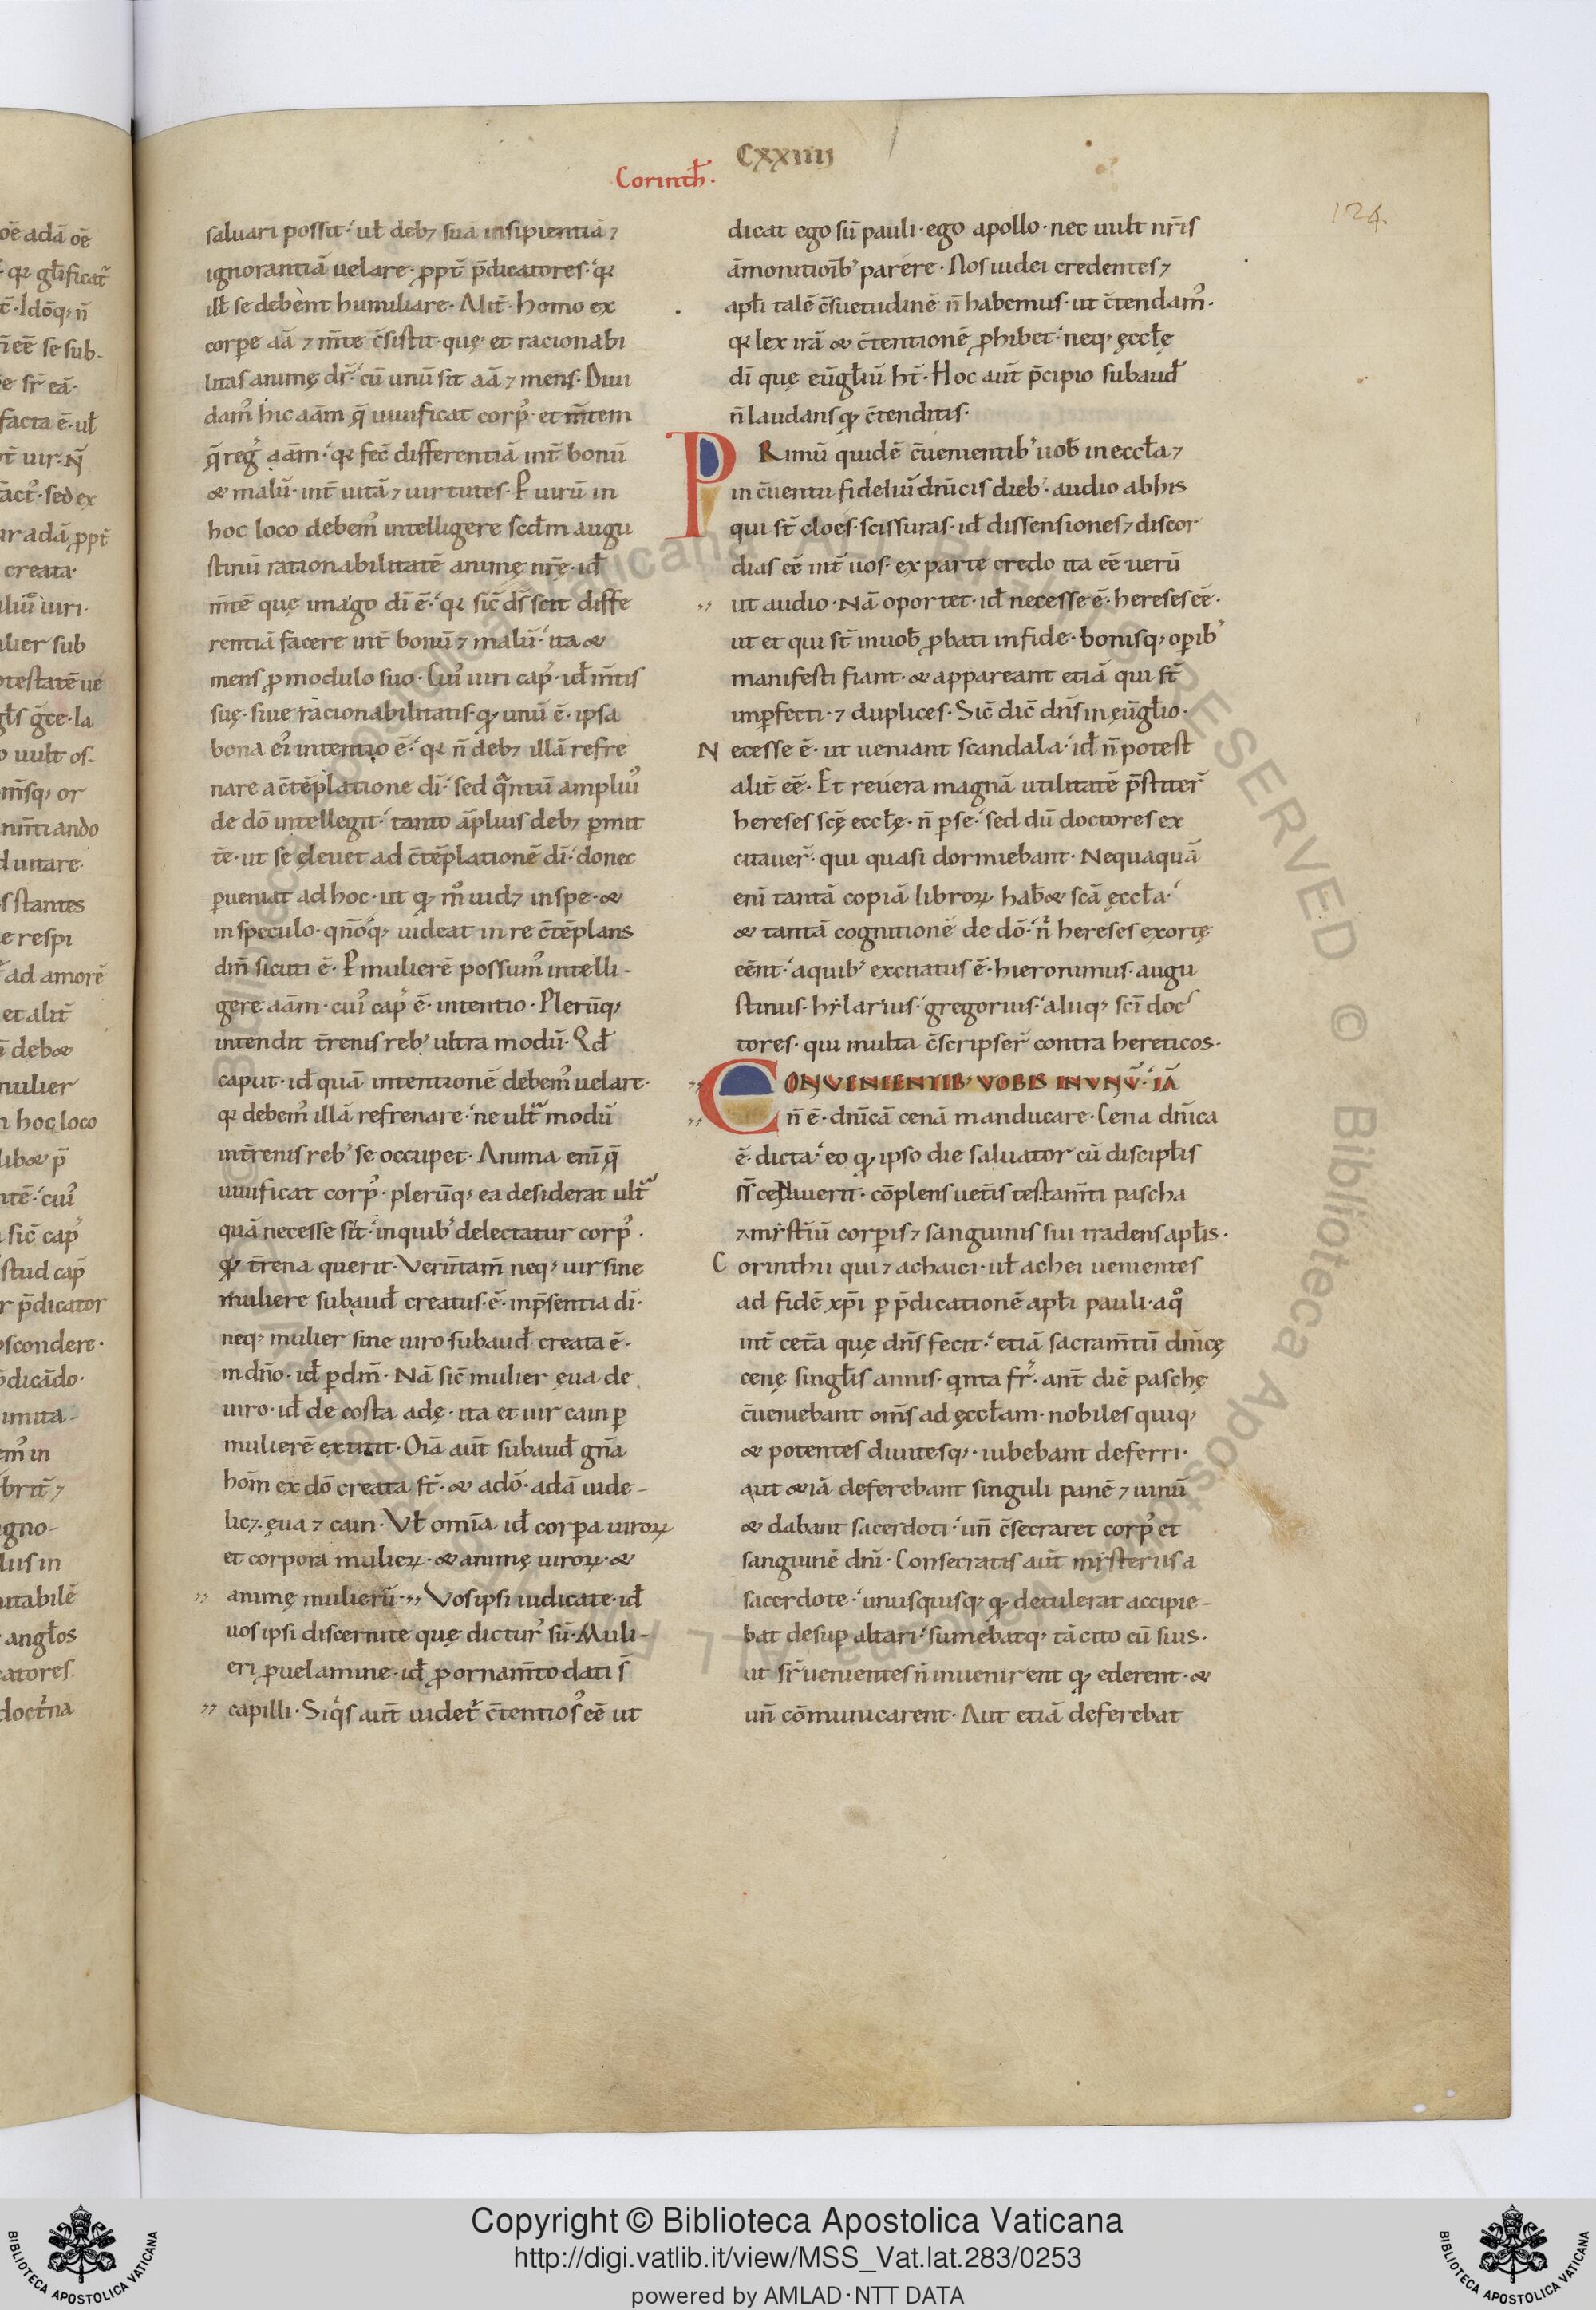 CXXIIII
Corinth̄.
124.
saluari possit· ul̄ deb; suā insipientiā ⁊
ignorantiā uelare· ꝓpt̄ p̄dicatores· qr
ill̄ se debent humiliare· Alit̄· homo ex
corpe aā ⁊ m̄te c̄sistit· quę et racionabi
litas animę dr̄· cū unū sit aā ⁊ mens· Diui
dam᾿ hic aām q̄ uiuificat corp᾿· et m̄tem
q̄ reg᾿ aām· qr fec̄ differentiā int̄ bonū
& malū· int̄ uitā ⁊ uirtutes· P uirū in
hoc loco debem᾿ intelligere scdm augu
stinū rationabilitatē animę nr̄ę· id̄
m̄te quę imago di ē· qr sic̄ ds̄ scit diffe
rentiā facere int̄ bonū ⁊ malū· ita &
mens ꝓ modulo suo· Cui᾿ uiri cap᾿· id̄ m̄tis
suę· siue racionabilitatis· qđ unū ē· ipsa
bona ei᾿ intentio ē· qr n̄ deb; illā refre
nare a c̄tēplatione di· sed q̄ntū ampliu᾿
de dō intellegit· tanto āplius deb; pmit
te· ut se eleuet ad c̄tēplationē di· donec
pueniat ad hoc· ut qđ m᾿ uid; in spe· &
in speculo· qn̄oq; uideat in re c̄tēplans
dm̄ sicuti ē· P mulierē possum᾿ intelli-
gere aām· cui᾿ cap᾿ ē· intentio· Plerūq;
intendit t̄renis reb᾿ ultra modū· Qd̄
caput· id̄ quā intentionē debem᾿ uelare·
qr debem᾿ illā refrenare· ne ult̄ modū
in t̄renis reb᾿ se occupet· Anima enī q̄
uiuificat corp᾿· plerūq; ea desiderat ult̄
quā necesse sit· in quib᾿ delectatur corp᾿·
qđ t̄rena querit· Verūtam̄ neq; uir sine
muliere subaud̄ creatus· ē· in p̄sentia di·
neq; mulier sine uiro subaud̄ creata ē·
in dn̄o· id̄ p dm̄· Nā sic̄ mulier ęua de
uiro· id̄ de costa adę· ita et uir cain p
mulierē extitit· Oīa aūt subaud̄ gn̄a
hom̄ ex dō creata st̄· & adō· adā uide-
lic;· ęua ⁊ cain· Vl̄ omīa id̄ corpa uiroꝝ
et corpora mulieꝝ· & animę uiroꝝ· &
animę mulierū· Vos ipsi iudicate· id̄
uos ipsi discernite quę dictur᾿ sū· Muli-
eri ꝓ uelamine· id̄ ꝓ ornam̄to dati s̄
capilli· Siq̇s aūt uidet᾿ c̄tentios᾿ eē ut
dicat ego sū pauli· ego apollo· nec uult nr̄is
āmonitioīb᾿ parere· Nos iudei credentes ⁊
apl̄i talē c̄suetudinē n̄ habemus· ut c̄tendam᾿·
qr lex irā & c̄tentionē ꝓhibet· neq; ęccl̄ę
di quę eūgl̄iū ht̄· Hoc aūt p̄cipio subaud̄
n̄ laudans qđ c̄tenditis·
PRimū quidē c̄uenientib᾿ uob̄ in eccl̄a ⁊
in c̄uentu fideliū dn̄icis dieb᾿· audio ab his
qui st̄ cloes· scissuras· id̄ dissensiones ⁊ discor
dias eē int̄ uos· ex parte credo ita eē uerū
ut audio· Nā oportet· id̄ necesse ē· hereses eē·
ut et qui st̄ in uob̄ ꝓbati in fide· bonisq; opib᾿
manifesti fiant· & appareant etiā qui st̄
impfecti· ⁊ duplices· Sic̄ dic̄ dn̄s in ęūgl̄io·
Necesse ē· ut ueniant scandala· id̄ n̄ potest
alit̄ eē· Et reuera magnā utilitatē p̄stiter᾿
hereses scę̄ eccl̄ę· n̄ p se· sed dū doctores ex
citauer᾿· qui quasi dormiebant· Nequaquā
enī tantā copiā libroꝝ hab& scā ęccl̄a·
& tantā cognitionē de dō· n᾿ hereses exortę
eēnt· a quib᾿ excitatus ē· hieronimus· augu
stinus· hẏlarius· gregorius· aliiq; sc̄i doc
tores· qui multa c̄scripser᾿ contra hereticos·
CONVENIENTIB᾿ VOBIS IN VNV̄· IĀ
n̄ ē· dn̄icā cenā manducare· Cena dn̄ica
ē· dicta· eo qđ ipso die saluator cū discipl̄is
ss̄ ceNauerit· cōplens uet̄is testam̄ti pascha
⁊ mẏst̄iū corpis ⁊ sanguinis sui tradens apl̄is·
Corinthii qui ⁊ achaici· ul̄ achei uenientes
ad fidē xp̄i p p̄dicationē apl̄i pauli· a q᾿
int̄ cet̄a quę dn̄s fecit· etiā sacram̄tū dn̄icę
cenę singl̄is annis· q̇nta fr᾿· ant̄ diē paschę
c̄ueniebant om̄s ad ęccl̄am· nobiles quiq;
& potentes diuitesq;· iubebant deferri·
aut &iā deferebant singuli panē ⁊ uinū
& dabant sacerdoti· un̄ c̄secraret corp᾿ et
sanguinē dn̄i· Consecratis aūt mẏsteriis a
sacerdote· unusquisq; qđ detulerat accipie-
bat desup altari· sumebatq; tacito cū suis·
ut sr᾿ uenientes n̄ inuenirent qđ ederent· &
un̄ cōmunicarent· Aut etiā deferebat
Copyright © Biblioteca Apostolica Vaticana
http://digi.vatlib.it/view/MSS_Vat.lat.283/0253
powered by AMLAD·NTT DATA
BIBLIOTECA APOSTOLICA VATICANA
BIBLIOTECA APOSTOLICA VATICANA